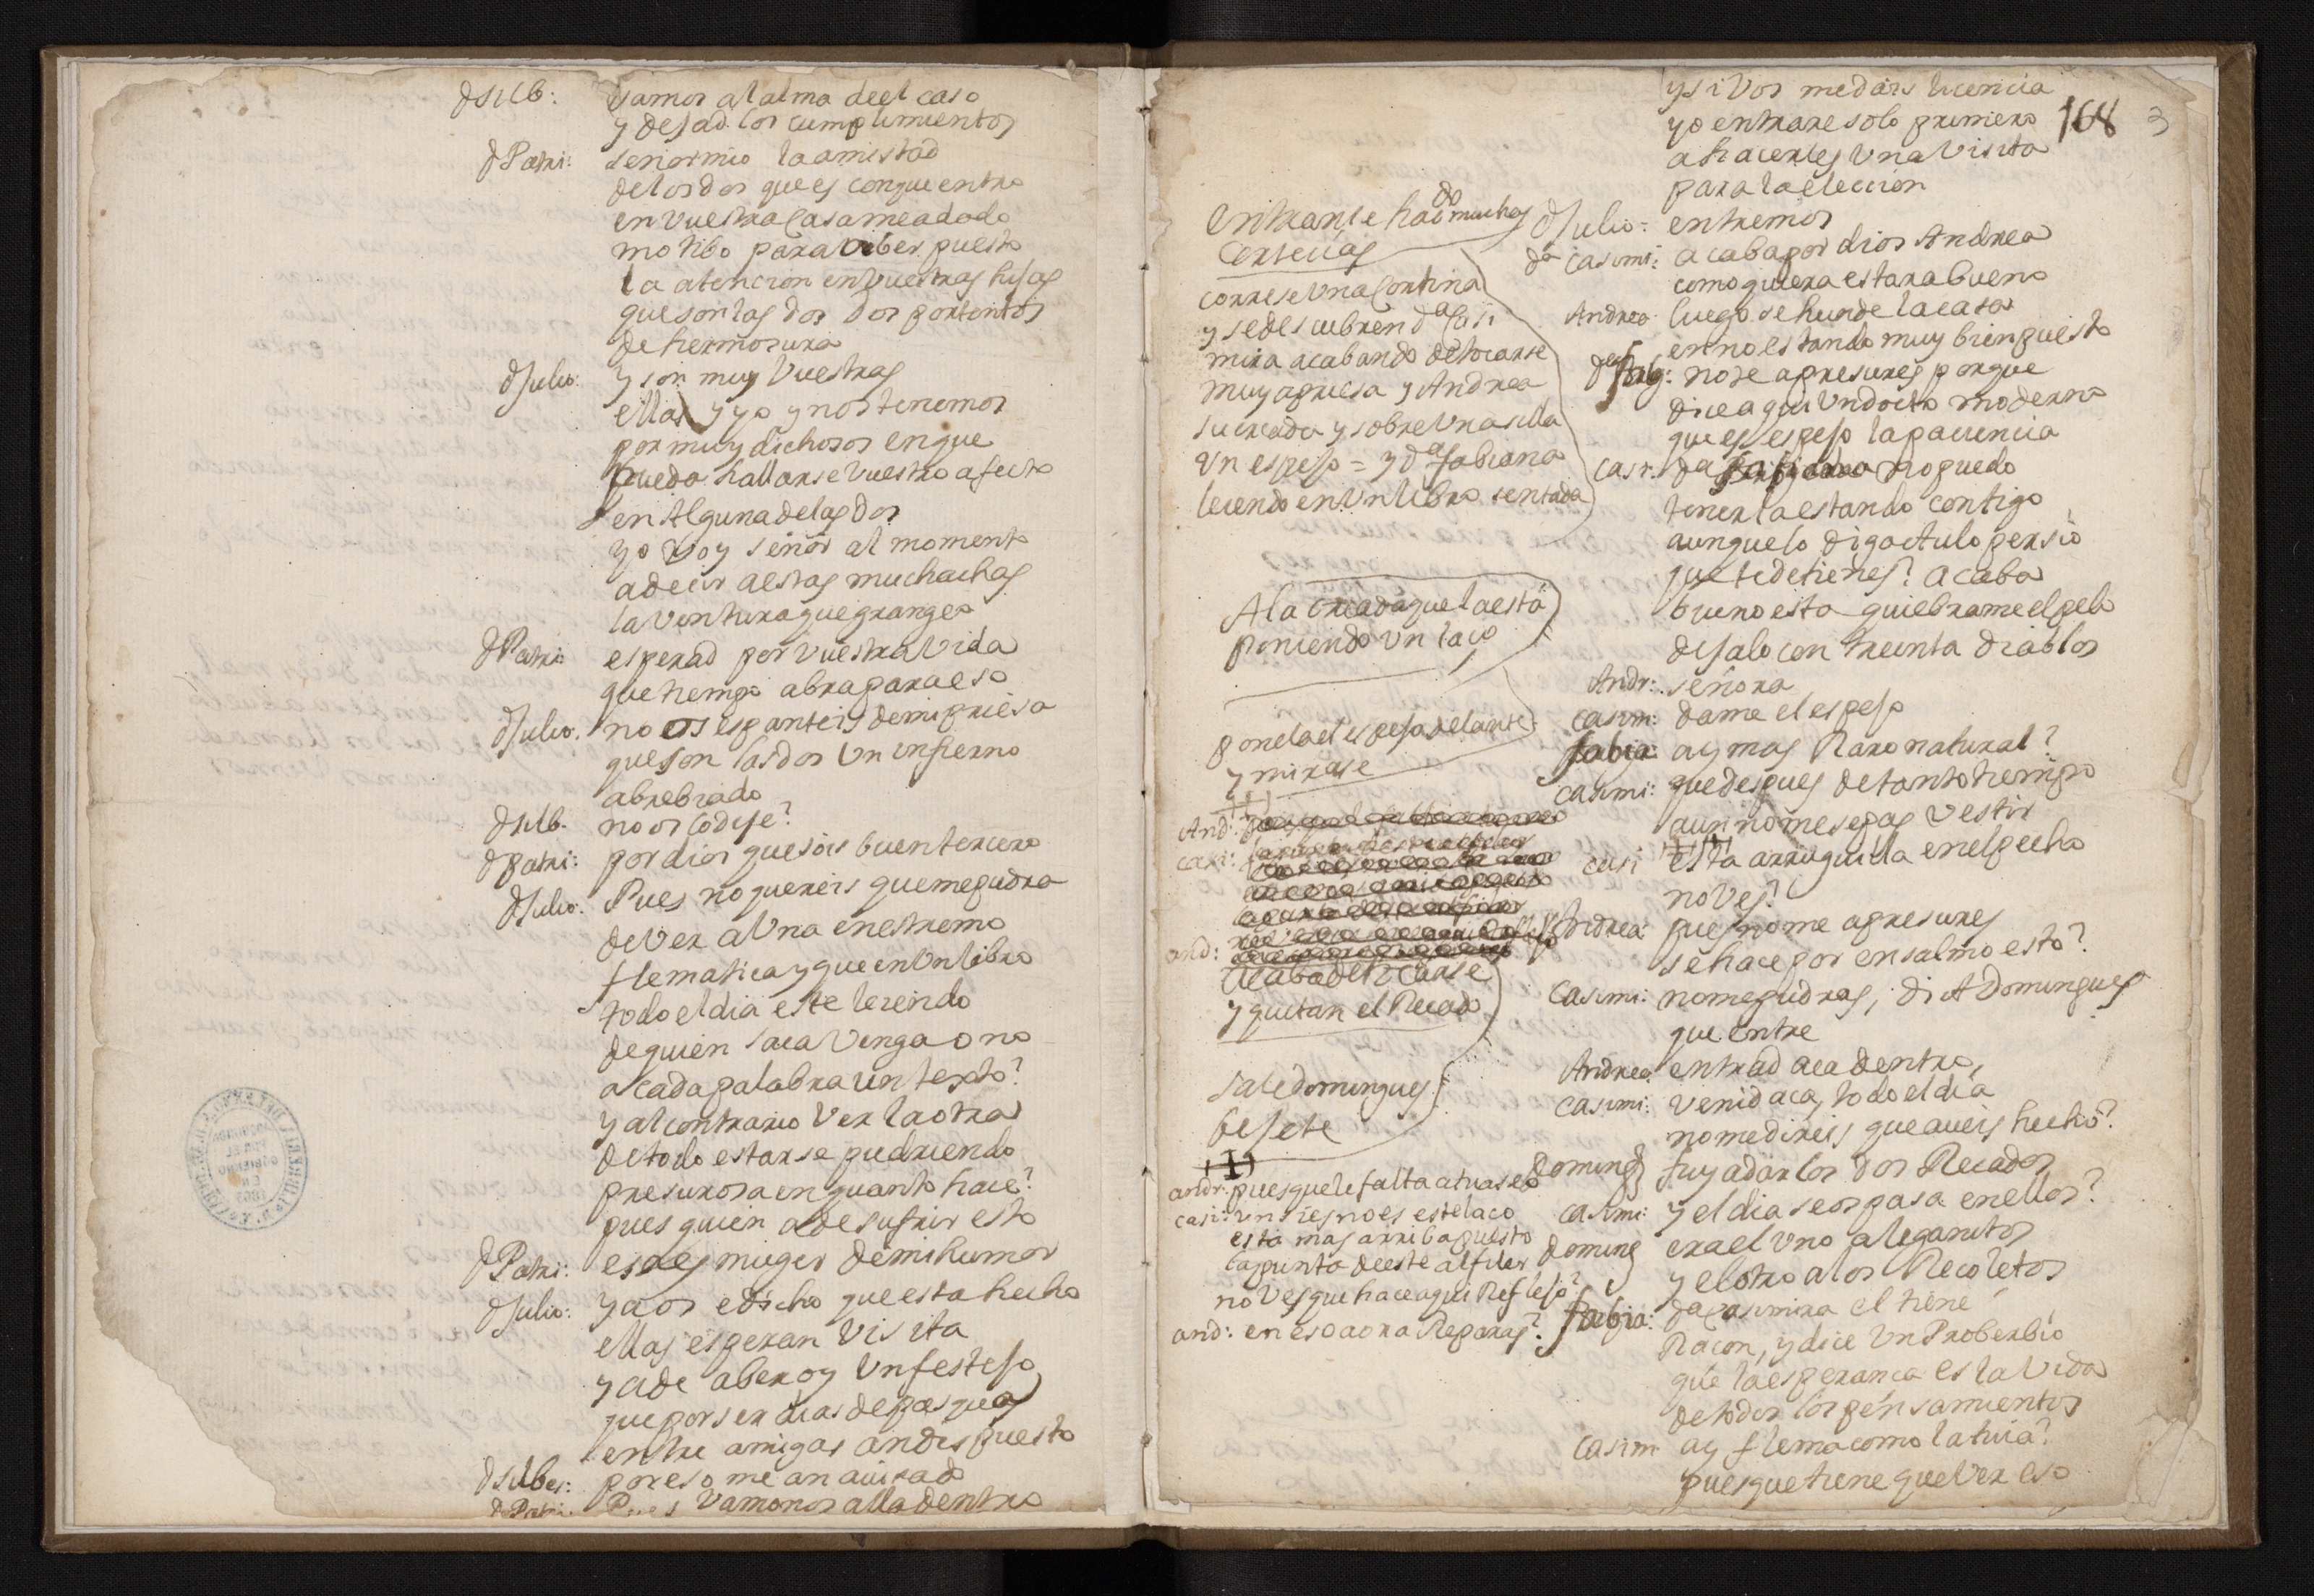 dSilb: Vamos al alma de el caso
y dejad los cumplimientos
dPatri: señor mio la amistad
de los dos que es con que entro
en vuestra Casa me a dado
motibo para aber puesto
la atencion en vuestras hijas
que son las dos dos portentos
de hermosura
dJulio: y son muy Vuestras
ellas y yo y nos tenemos
por muy dichosos en que
pueda hallarse vuestro afecto
en Alguna de las dos
yo voy señor al momento
a decir a estas muchachas
la ventura que grangeo
dPatri: esperad por vuestra Vida
que tiempo abra para eso
dJulio. no os espanteis de mi priesa
que son las dos Un infierno
abrebiado
dSilb. no os lo dije?
dpatri: por dios que sois buen tercero
dJulio. Pues no quereis que me pudra
de Ver a Una en estremo
flematica y que en Un libro
todo el dia este leiendo
de quien saca Venga o no
a cada palabra un texto?
y al contrario Ver la otra
de todo estarse pudriendo
presurosa en quanto hace?
pues quien a de sufrir esto
dPatri: esa es muger de mi humor
dJulio: ya os e dicho que esta hecho
ellas esperan Visita
y a de aber oy Un festejo
que por ser dias de pasquas
entre amigas an dispuesto
dSilbes: por eso me an auisado
dPatri. Pues Vamonos alla dentro
y si Vos me dais licencia
yo entrare solo primero
168 3
a hacerles Una Visita
para la eleccion
Entranse haciendo muchas
Cortecias
dJulio: entremos
da Casimi: acaba por dios Andrea
como quiera estara bueno
correse Una Cortina
y se descubren da Casi
mira acabando de tocarse
muy apriesa y Andrea
su criada y sobre Una silla
Un espejo = y da fabiana
leiendo en Un libro sentada
Andrea. luego se hunde la casa
en no estando muy bien puesto
no te apresures porque
dice aqui Un docto moderno
que es espejo la paciencia
Casi: da no puedo
tenerla estando contigo
aunque lo diga Aulo persio
que te detienes? acaba
A la criada que la está
poniendo un laço
bueno esta quiebrame el pelo
dejalo con treinta diablos
Andr: señora
Casim: dame el espejo
ponela el espejo delante
y mirase
fabia: ay mas Raro natural?
casimi: que despues de tanto tiempo
aun no me sepas Vestir
And:
casi:
casi esta arruguilla en el pecho
no Ves?
and:
Andrea: pues no me apresures
se hace por ensalmo esto?
Acaba de tocarse
y quitan el Recado
Casimi: no me pudras, di A Domingues
que entre
Andrea: entrad aca dentro,
Sale domingues
bejete
casimi: Venid aca, todo el dia
no me direis que aueis hecho?
Doming fuy a dar los dos Recados
andr: pues que le falta a tu aseo
casi: y el dia se os pasa en ellos?
casimi:
esta mas arriba puesto
la punta de este alfiler
no Ves que hace aqui Reflejo?
and: en eso aora Reparas?
Doming era el Uno a leganitos
y el otro a los Recoletos
fabia: da Casimira el tiene
Raçon, y dice Un Proberbio
que la esperança es la Vida
de todos los pensamientos
Casim ay flema como la tuia?
pues que tiene que Ver eso